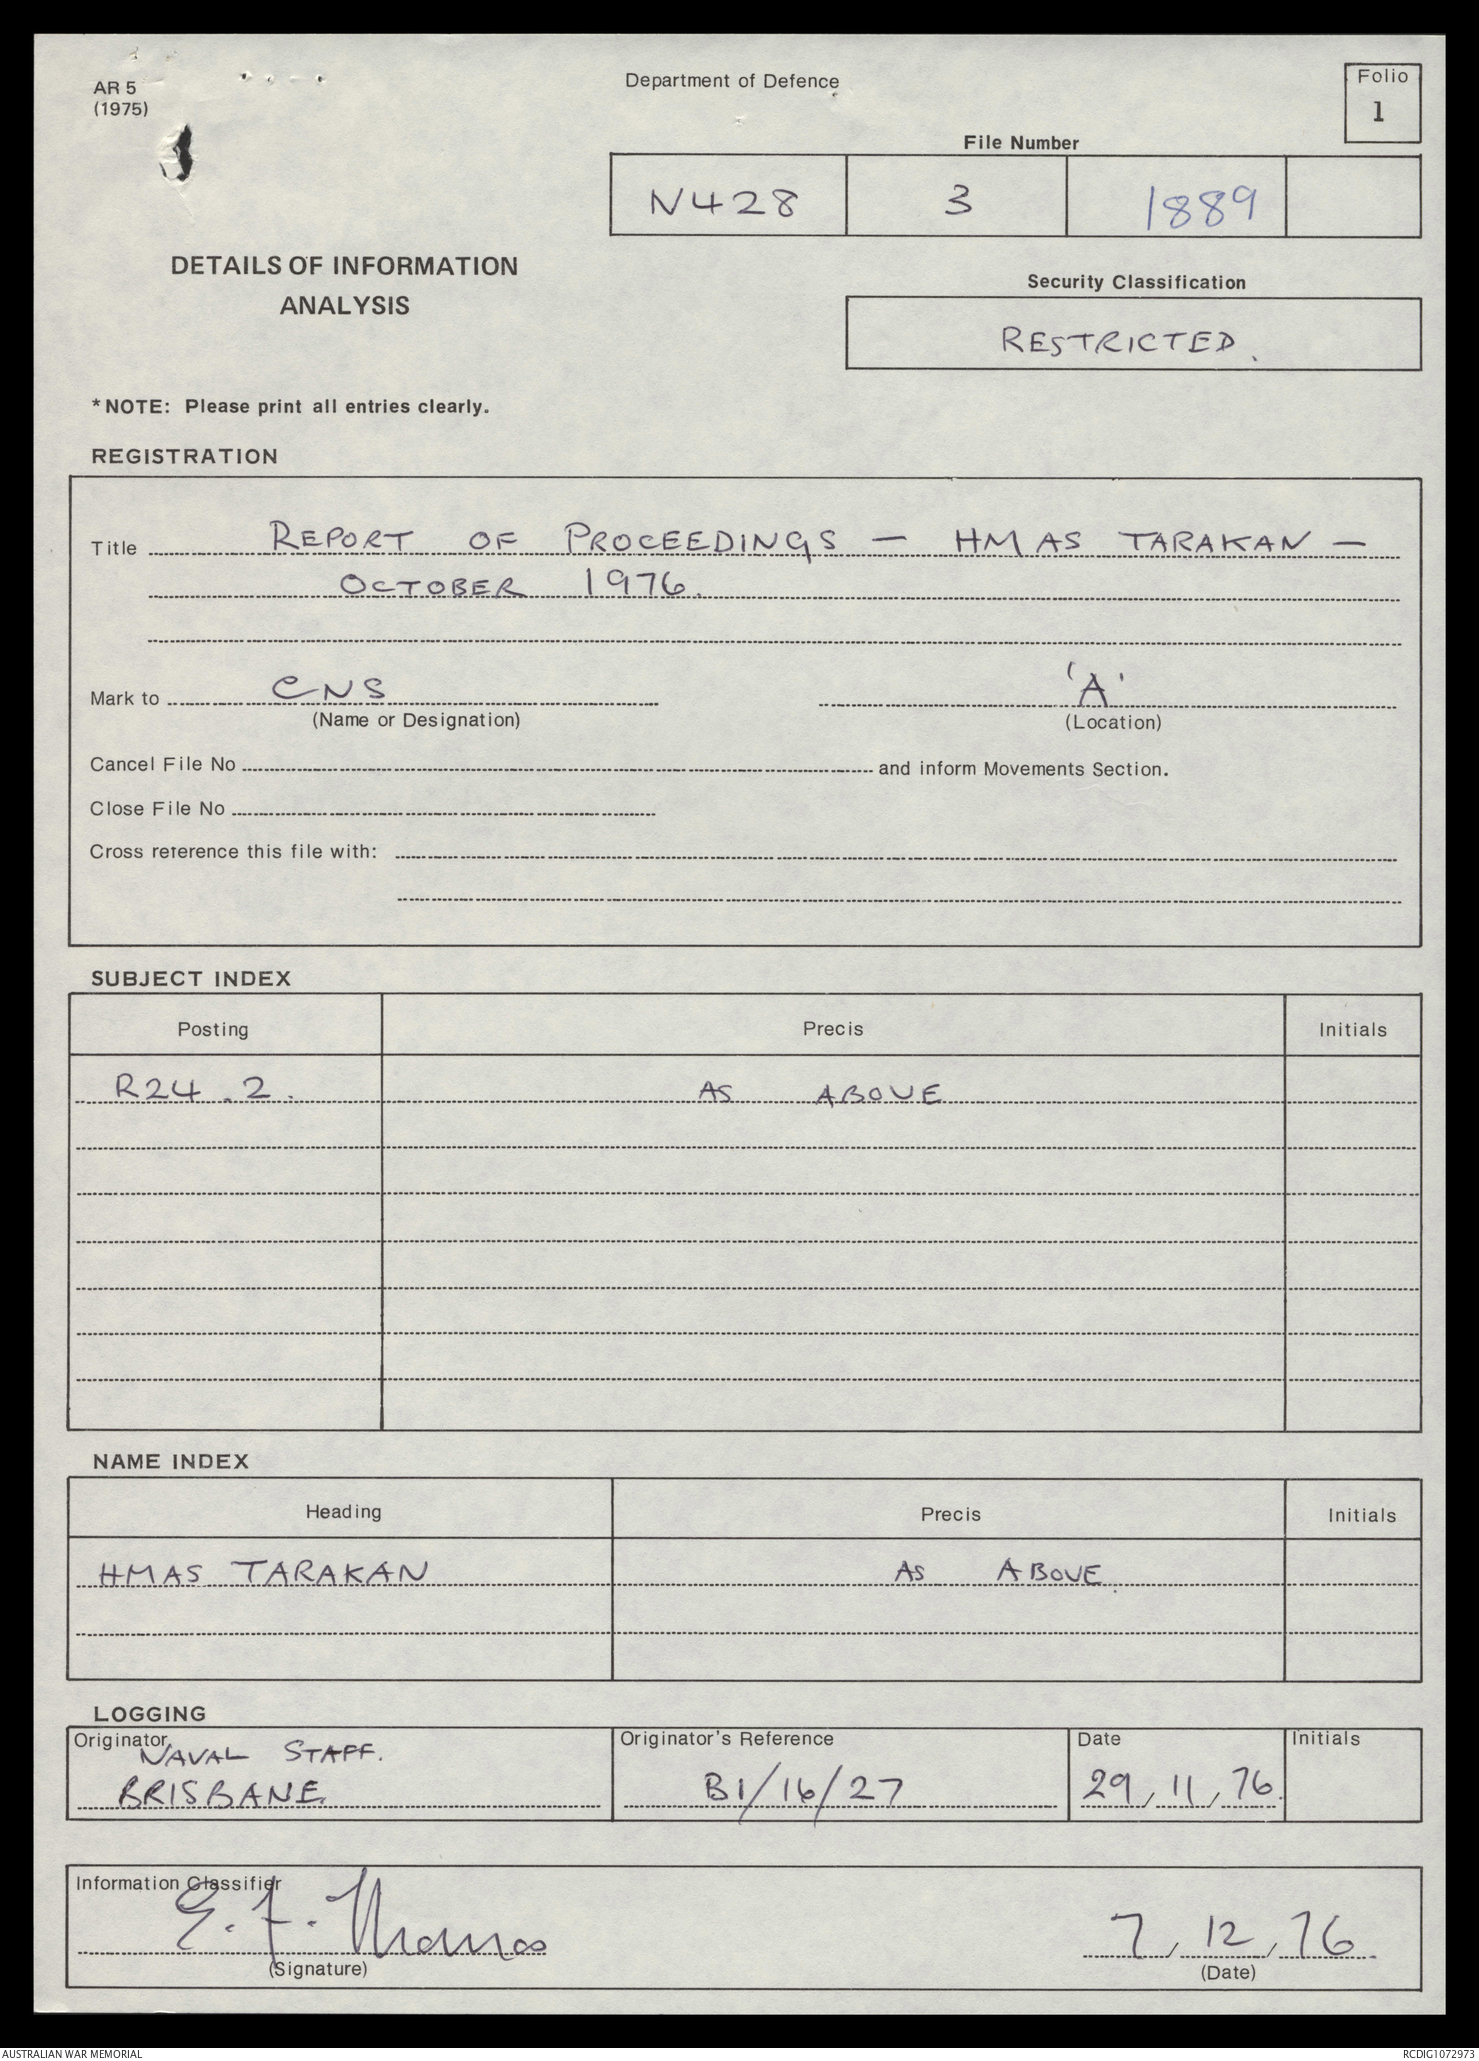 AR 5
(1975)
Department of Defence
Folio
1
File Number
N428 3 1889
DETAILS OF INFORMATION
ANALYSIS
Security Classification
RESTRICTED.
*NOTE: Please print all entries clearly.
REGISTRATION
Title REPORT OF PROCEEDINGS — HMAS TARAKAN —
OCTOBER 1976.
Mark to CNS 'A'
(Name or Designation) (Location)
Cancel File No and inform Movements Section.
Close File No
Cross reference this file with:
SUBJECT INDEX
Posting Precis Initials
R24.2. AS ABOVE
NAME INDEX
Heading Precis Initials
HMAS TARAKAN AS ABOVE.
LOGGING
Originator Originator's Reference Date Initials
NAVAL STAFF.
BRISBANE. B1/16/27 29, 11, 76.
Information Classifier
E. F. Thomas 7, 12, 76
(Signature) (Date)
AUSTRALIAN WAR MEMORIAL RCDIG1072973